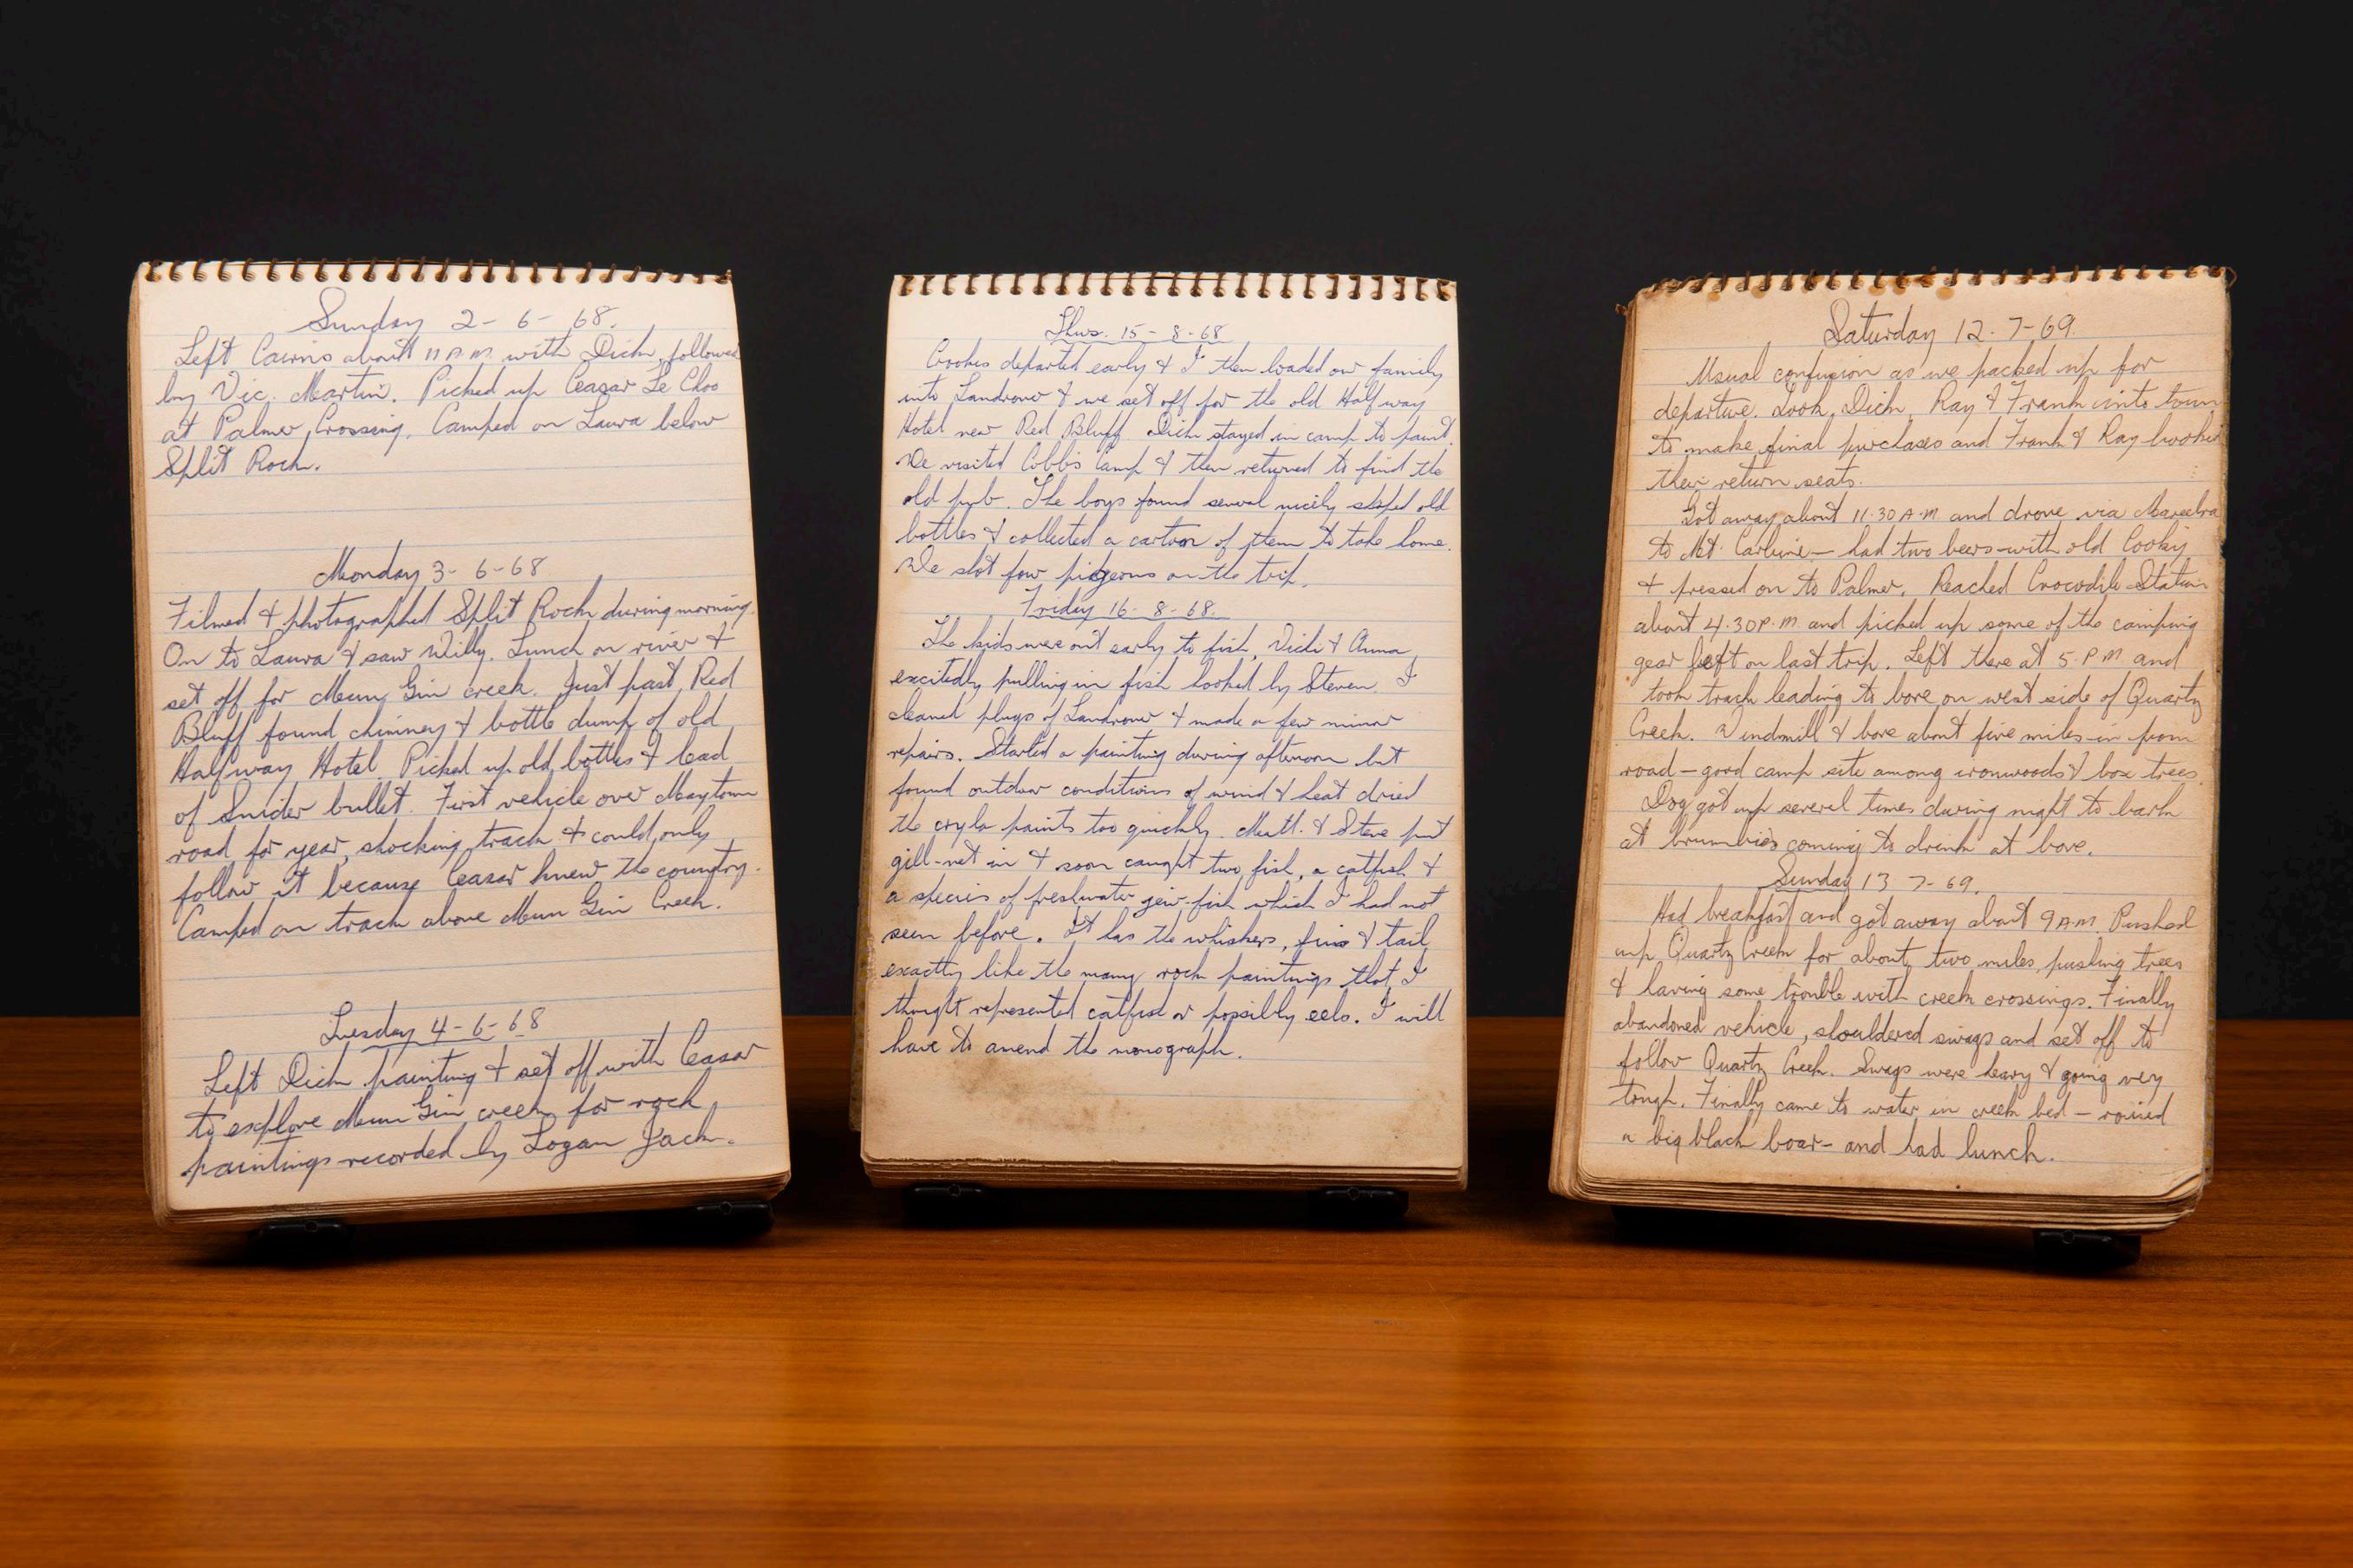 Sunday 2-6-68.
Left Cairns about 11 A.M. with Dick, followed
by Vic. Martin. Picked up Ceasar Le Choo
at Palmer Crossing. Camped on Laura below
Split Rock.
Monday 3-6-68
Filmed & photographed Split Rock during morning.
On to Laura & saw Willy. Lunch on river &
set off for Mun Gin creek. Just past Red
Bluff found chimney & bottle dump of old
Halfway Hotel. Picked up old bottles & lead
of Snider bullet. First vehicle over Maytown
road for year, shocking track & could only
follow it because Ceasar knew the country.
Camped on track above Mun Gin Creek.
Tuesday 4-6-68
Left Dick painting & set off with Ceasar
to explore Mun Gin creek for rock
paintings recorded by Logan Jack.
Thurs. 15-8-68
Crookes departed early & I then loaded our family
into Landrover & we set off for the old Halfway
Hotel near Red Bluff. Dick stayed in camp to paint.
We visited Cobb's Camp & then returned to find the
old pub. The boys found several nicely shaped old
bottles & collected a carton of them to take home.
We shot few pidgeons on the trip.
Friday 16-8-68.
The kids were out early to fish, Vicki & Anna
excitedly pulling in fish hooked by Steven. I
cleaned plugs of Landrover & made a few minor
repairs. Started a painting during afternoon but
found outdoor conditions of wind & heat dried
the cryla paints too quickly. Matt. & Steve put
gill-net in & soon caught two fish, a catfish &
a species of freshwater jew-fish which I had not
seen before. It has the whiskers, fins & tail
exactly like the many rock paintings that I
thought represented catfish or possibly eels. I will
have to amend the monograph.
Saturday 12-7-69.
Usual confusion as we packed up for
departure. Took Dick, Ray & Frank into town
to make final purchases and Frank & Ray booked
their return seats.
Got away about 11.30 A.M. and drove via Mareeba
to Mt. Carbine – had two beers with old Cooky
& pressed on to Palmer. Reached Crocodile Station
about 4.30 P.M and picked up some of the camping
gear left on last trip. Left there at 5 P.M and
took track leading to bore on west side of Quartz
Creek. Windmill & bore about five miles in from
road – good camp site among ironwoods & box trees.
Dog got up several times during night to bark
at brumbies coming to drink at bore.
Sunday 13 7-69.
Had breakfast and got away about 9 A.M. Pushed
up Quartz Creek for about two miles, pushing trees
& having some trouble with creek crossings. Finally
abandoned vehicle, shouldered swags and set off to
follow Quartz Creek. Swags were heavy & going very
tough. Finally came to water in creek bed –
a big black boar – and had lunch.